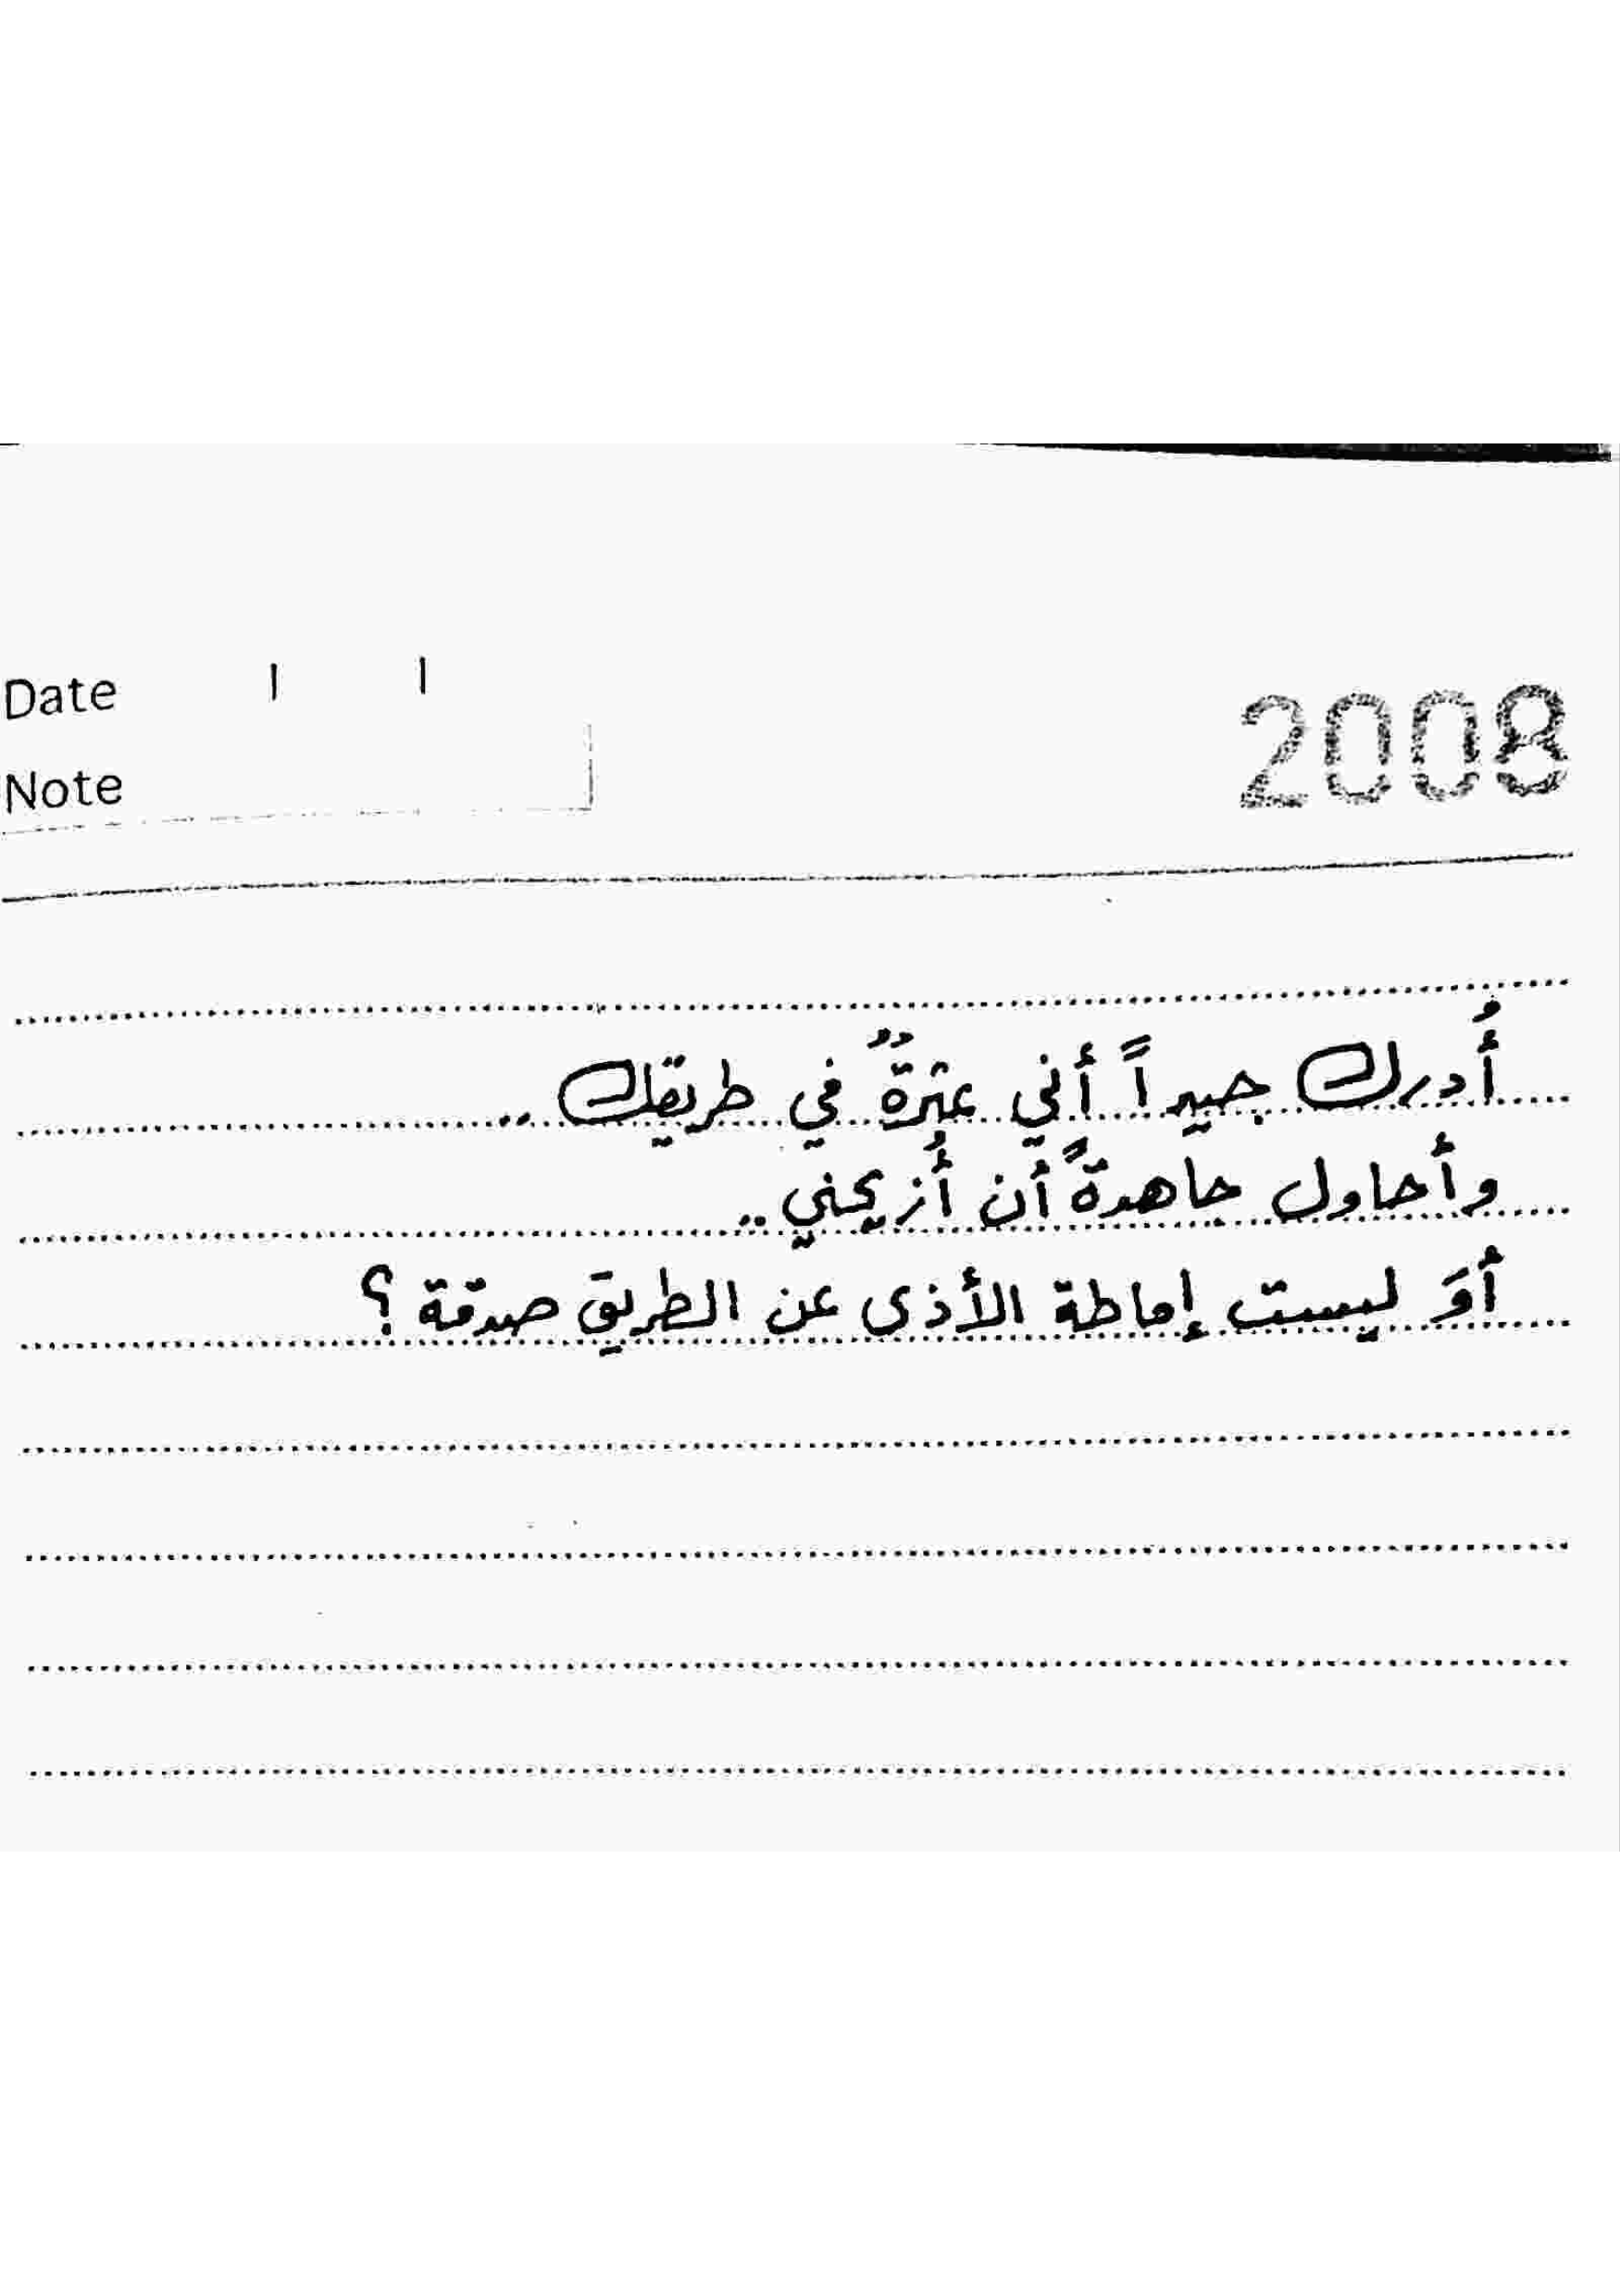 Date / /
2008
Note
أُدرك جيداً أني عثرةٌ في طريقك ..
وأحاول جاهدةً أن أُزيحني ..
أوَ ليست إماطة الأذى عن الطريق صدقة ؟